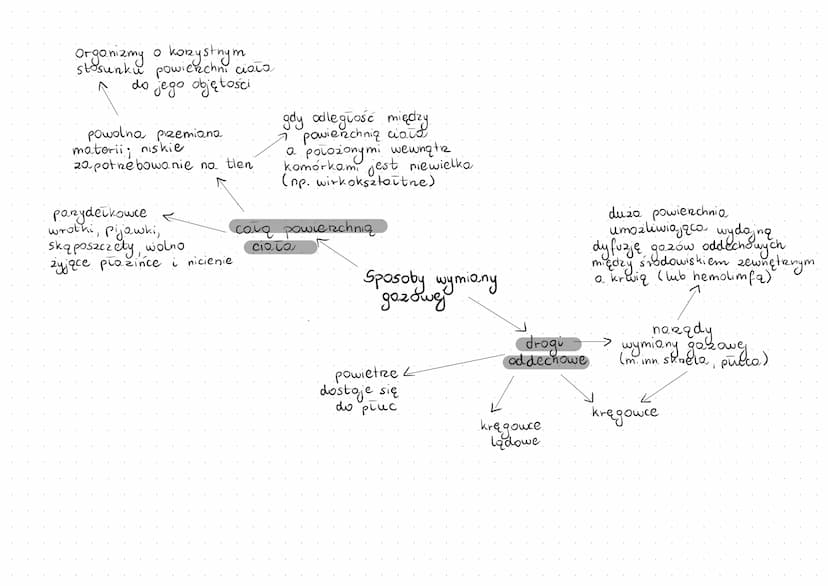 Organizmy o korzystnym
stosunku powierzchni ciała
do jego objętości
powolna przemiana
materii; niskie
zapotrzebowanie na tlen
gdy odległość między
powierzchnią ciała
a położonymi wewnątrz
komórkami jest niewielka
(np. wirkokształtne)
parzydełkowce
wrotki, pijawki,
skąposzczety, wolno
żyjące płazińce i nicienie
całą powierzchnią
ciała
Sposoby wymiany
gazowej
duża powierzchnia
umożliwiająca wydajną
dyfuzję gazów oddechowych
między środowiskiem zewnętrznym
a krwią (lub hemolimfą)
narządy
wymiany gazowej
(m.inn skrzela, płuca)
drogi
oddechowe
powietrze
dostaje się
do płuc
kręgowce
lądowe
kręgowce